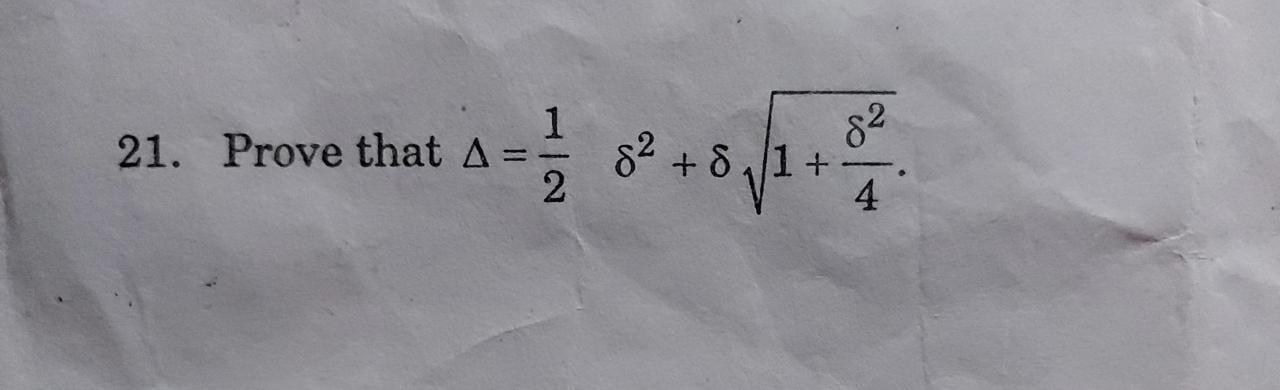 21. Prove that Δ = 1/2 δ² + δ√(1 + δ²/4).